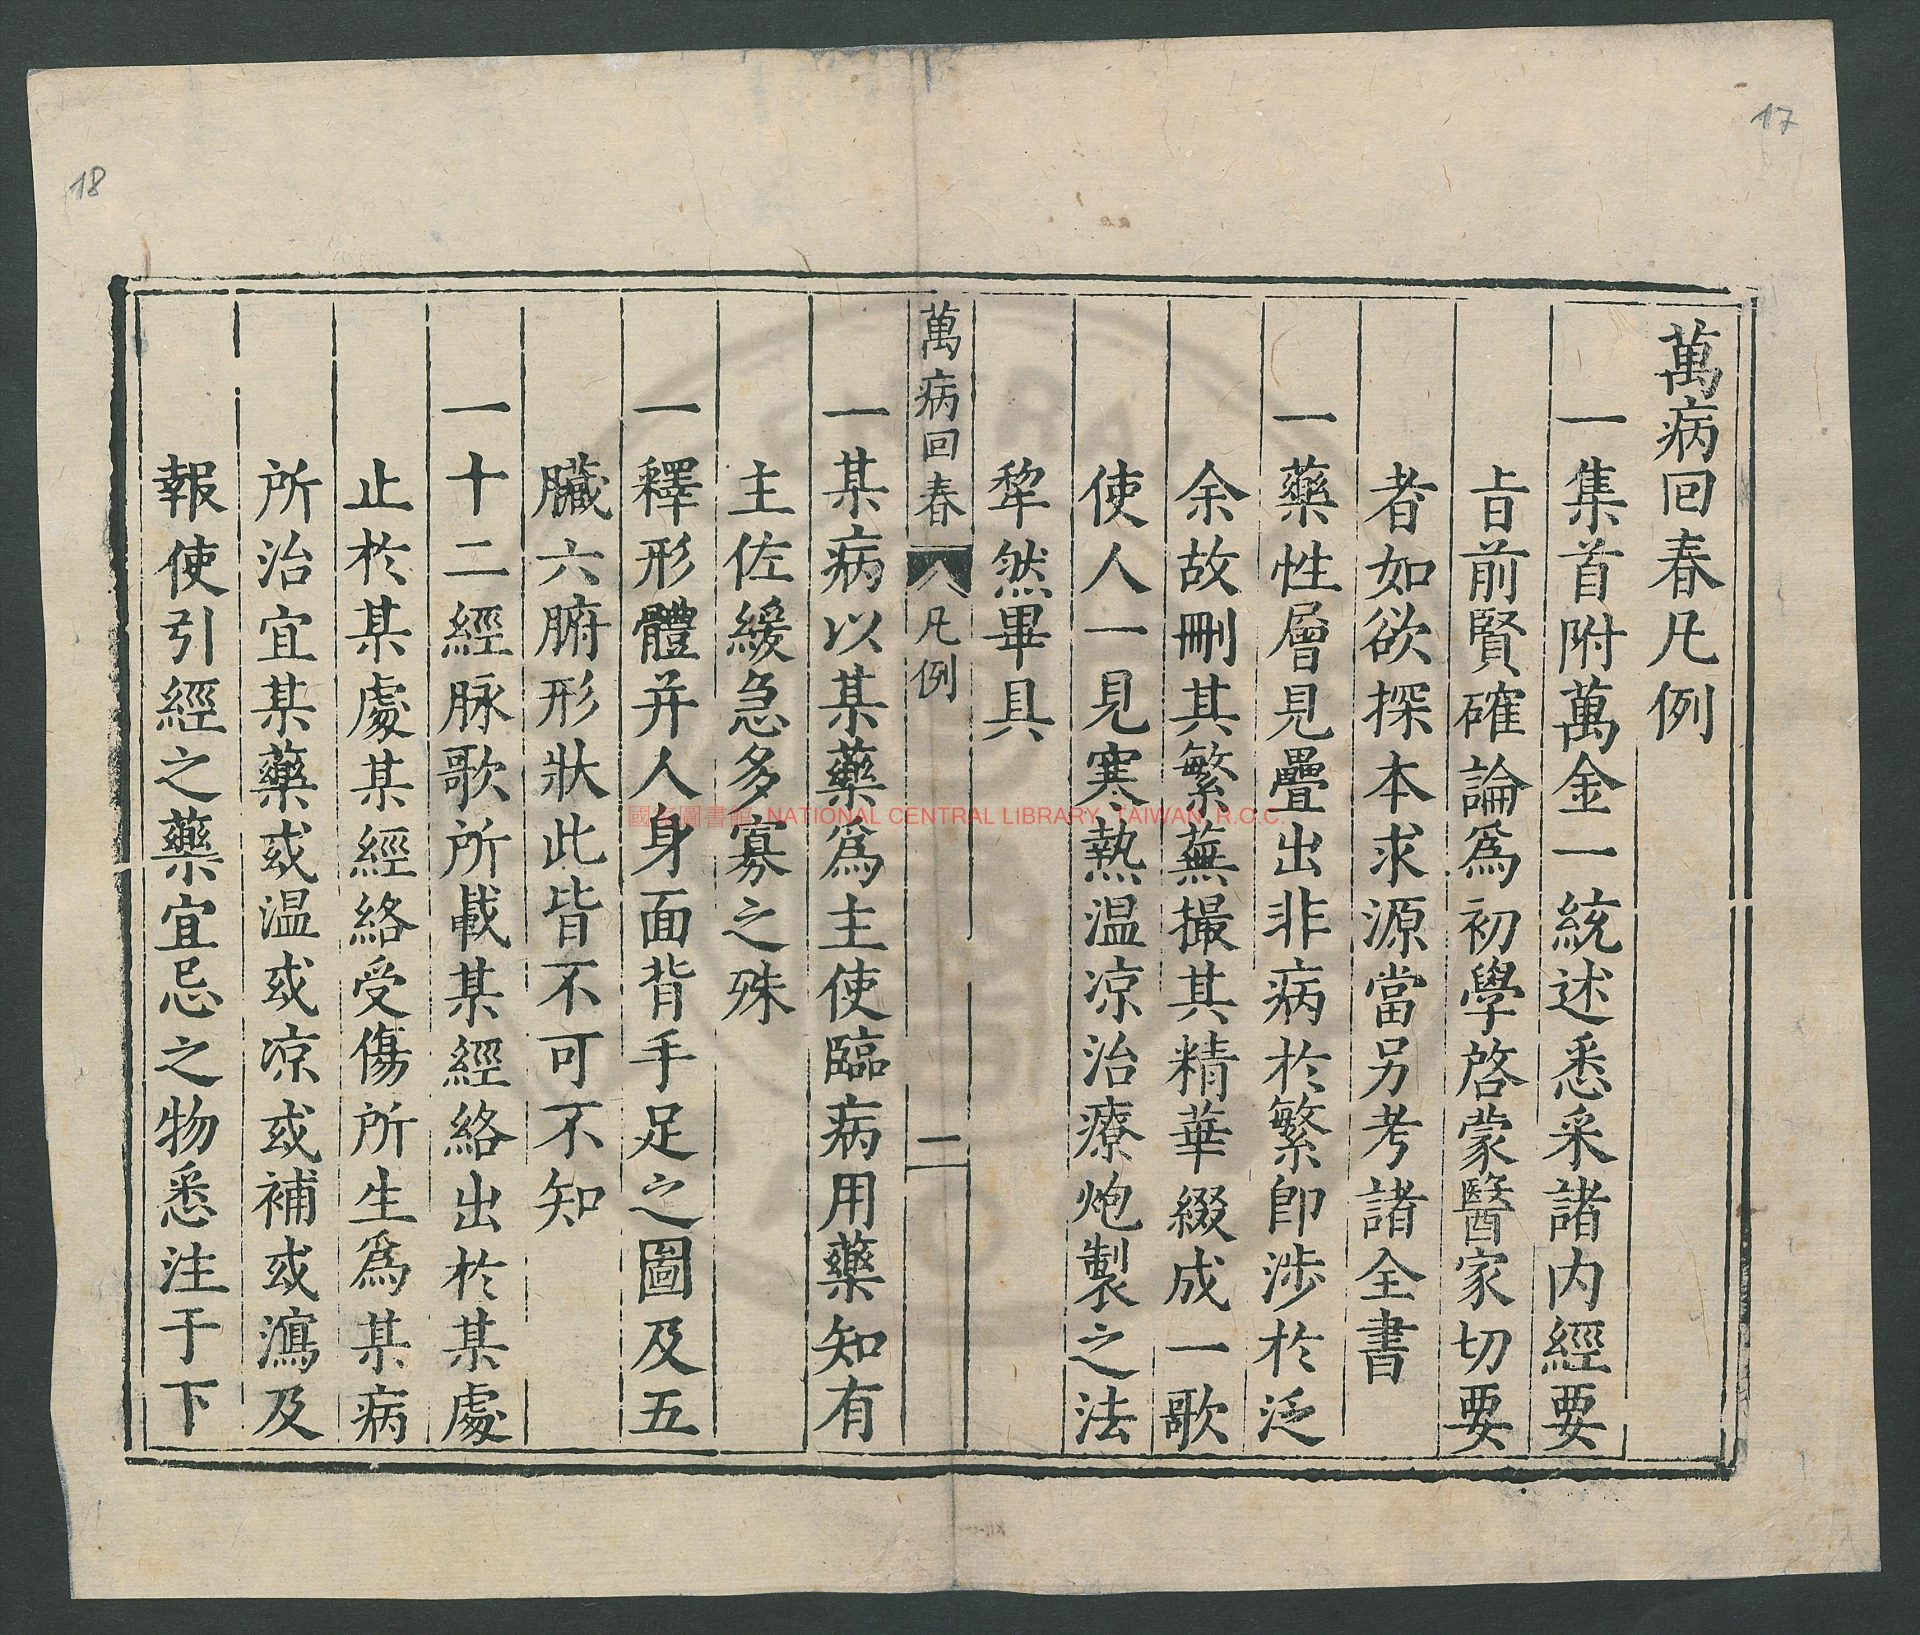 萬病回春凡例
一集首附萬金一統述悉采諸内經要
旨前賢確論爲初學啓蒙醫家切要
者如欲探本求源當另考諸全書
一藥性層見疊出非病於繁即涉於泛
余故刪其繁蕪撮其精華綴成一歌
使人一見寒熱温凉治療炮製之法
犂然畢具
萬病回春 凡例 二
一某病以某藥爲主使臨病用藥知有
主佐緩急多寡之殊
一釋形體并人身面背手足之圖及五
臟六腑形狀此皆不可不知
一十二經脉歌所載某經絡出於某處
止於某處某經絡受傷所生爲某病
所治宜某藥或温或凉或補或瀉及
報使引經之藥宜忌之物悉注于下
17
18
國家圖書館 NATIONAL CENTRAL LIBRARY, TAIWAN, R.O.C.